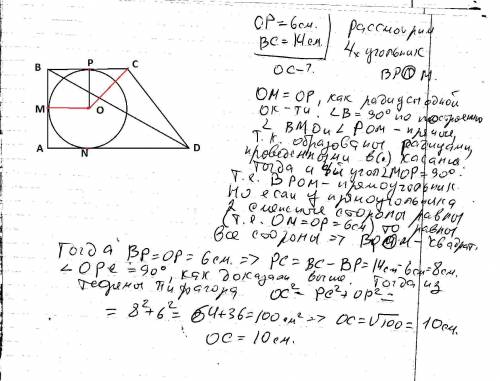 OP = 6 см.
BC = 14 см.
OC - ?
Рассмотрим
4х угольник
BPOM.
B P C
M O
A N D
OM = OP, как радиусы одной
ок-ти. ∠B = 90° по построению
∠ BMO и ∠ POM - прямые,
т.к. образованы радиусами,
проведенными в (·) касания
Тогда и 4й угол ∠MOP = 90°
т.е. BPOM - прямоугольник.
Но если у прямоугольника
2 смежные стороны равны
(т.е. OM = OP = 6 см) то равны
все стороны => BPOM - квадрат.
Тогда BP = OP = 6 см. => PC = BC - BP = 14 см - 6 см = 8 см.
∠ OPC = 90°, как доказали выше. Тогда из
теоремы Пифагора OC² = PC² + OP² =
= 8² + 6² = 64 + 36 = 100 см² => OC = √100 = 10 см.
OC = 10 см.